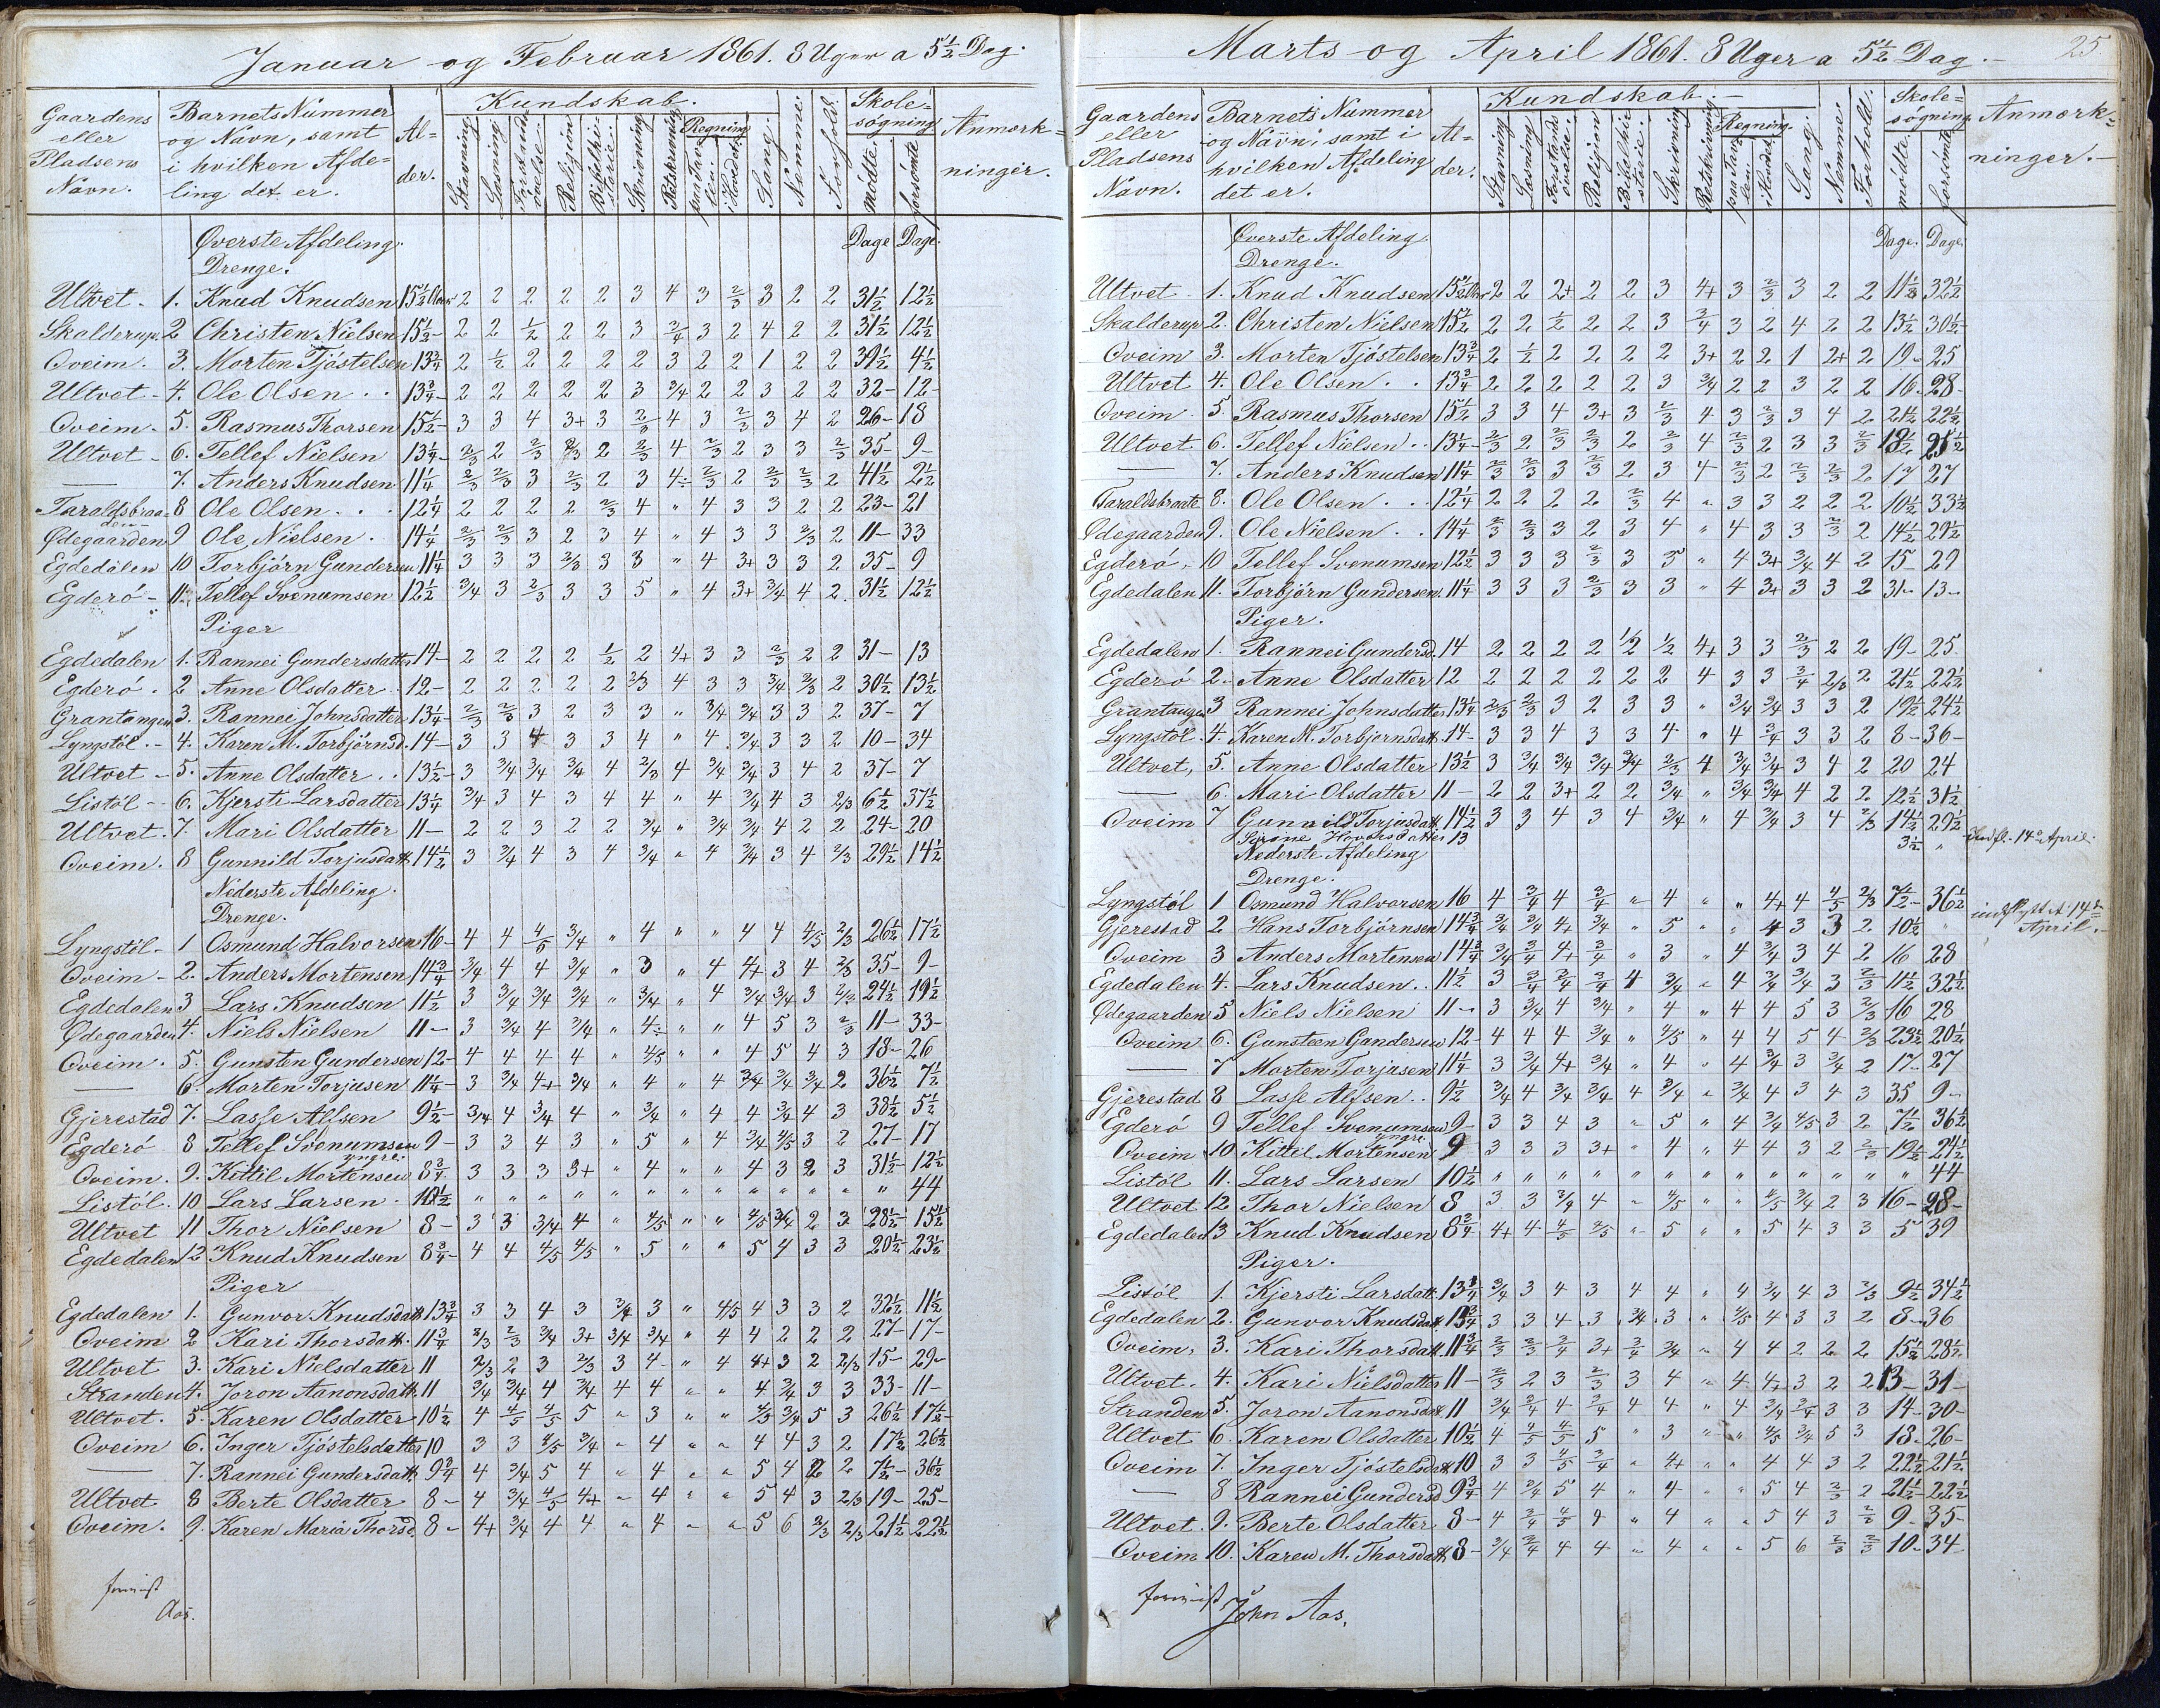 Januar og Februar 1861. 8 Uger a 5½ Dag.
Gaardens eller Pladsens Navn. Barnets Nummer og Navn, samt i hvilken Afdeling det er. Alder. Kundskab. Stavning Læsning Forstandsøvelse Religion Bibelhistorie Skrivning Retskrivning Regning paa Tavlen i Hovedet Sang. Nemme. Forhold. Skolesøgning mødte. forsömte Anmærkninger.
Øverste Afdeling. Dage Dage.
Drenge.
Ultvet - 1. Knud Knudsen 15½ Aar 2 2 2 2 2 3 4 3 2/3 3 2 2 31½ 12½
Skalderup 2 Christen Nielsen 15½- 2 2 ½ 2 2 3 3/4 3 2 4 2 2 31½ 12½
Oveim. 3. Morten Tjöstelsen 13¾ 2 ½ 2 2 2 2 3 2 2 1 2 2 39½ 4½
Ultvet - 4. Ole Olsen . . 13¾- 2 2 2 2 2 3 3/4 2 2 3 2 2 32- 12-
Oveim - 5. Rasmus Thorsen 15½- 3 3 4 3+ 3 2/3 4 3 2/3 3 4 2 26- 18
Ultvet - 6. Tellef Nielsen 13¼- 2/3 2 2/3 2/3 2 2/3 4 2/3 2 3 3 2/3 35- 9-
— 7. Anders Knudsen 11¼ 2/3 2/3 3 2/3 2 3 4÷ 2/3 2 2/3 2/3 2 41½ 2½
Taraldsbraaten 8 Ole Olsen . . 12¼ 2 2 2 2 2/3 4 " 4 3 3 2 2 23- 21
Ødegaarden 9 Ole Nielsen . 14¼ 2/3 2/3 3 2 3 4 " 4 3 3 2/3 2 11- 33
Egdedalen 10 Torbjörn Gundersen 11¼ 3 3 3 2/3 3 3 " 4 3+ 3 3 2 35- 9
Egderö - 11. Tellef Svenumsen 12½ 3/4 3 2/3 3 3 5 " 4 3+ 3/4 4 2 31½ 12½
Piger
Egdedalen 1. Rannei Gundersdatter 14- 2 2 2 2 ½ 2 4+ 3 3 2/3 2 2 31- 13
Egderö . 2 Anne Olsdatter . 12- 2 2 2 2 2 2/3 4 3 3 3/4 2/3 2 30½ 13½
Grantangen 3. Rannei Johnsdatter 13¼- 2/3 2/3 3 2 3 3 " 3/4 3/4 3 3 2 37- 7
Lyngstöl .- 4. Karen M. Torbjörnsd. 14- 3 3 4 3 3 4 " 4 3/4 3 3 2 10- 34
Ultvet - 5. Anne Olsdatter . . 13½- 3 3/4 3/4 3/4 4 2/3 4 3/4 3/4 3 4 2 37- 7
Listöl -- 6. Kjersti Larsdatter 13¼ 3/4 3 4 3 4 4 " 4 3/4 4 3 2/3 6½ 37½
Ultvet. 7. Mari Olsdatter 11- 2 2 3 2 2 3/4 " 3/4 3/4 4 2 2 24- 20
Oveim. 8 Gunnild Torjusdatt. 14½ 3 3/4 4 3 4 3/4 " 4 3/4 3 4 2/3 29½ 14½
Nederste Afdeling.
Drenge.
Lyngstöl - 1 Osmund Halvorsen 16- 4 4 4/5 3/4 " 4 " " 4 4 4/5 2/3 26½ 17½
Oveim - 2. Anders Mortensen 14¾ 3/4 4 4 3/4 " 3 " 4 4+ 3 4 2/3 35- 9-
Egdedalen 3 Lars Knudsen 11½ 3 3/4 3/4 3/4 " 3/4 " 4 3/4 3/4 3 2/3 24½ 19½
Ødegaarden 4. Niels Nielsen 11- 3 3/4 4 3/4 " 4÷ " " 4 5 3 2/3 11- 33-
Oveim . 5. Gunsten Gundersen 12- 4 4 4 4 " 4/5 " " 4 5 4 3 18- 26
— 6. Morten Torjusen 11¼- 3 3/4 4+ 3/4 " 4 " 4 3/4 3/4 3/4 2 36½ 7½
Gjerestad 7. Lasse Alfsen 9½- 3/4 4 3/4 4 " 3/4 " 4 4 3/4 4 3 38½ 5½
Egderö 8 Tellef Svenumsen yngre. 9- 3 3 4 3 " 5 " 4 3/4 4/5 3 2 27- 17
Oveim. 9. Kittil Mortensen 8¾ 3 3 3 3+ " 4 " " 4 3 2 3 31½ 12½
Listöl. 10 Lars Larsen . 10½ " " " " " " " " " " " " " 44
Ultvet 11 Thor Nielsen 8- 3 3 3/4 4 " 4/5 " " 4/5 3/4 2 3 28½ 15½
Egdedalen 12 Knud Knudsen 8¾- 4 4 4/5 4/5 " 5 " " 5 4 3 3 20½ 23½
Piger
Egdedalen 1. Gunvor Knudsdatt. 13¾ 3 3 4 3 3/4 3 " 4/5 4 3 3 2 32½ 11½
Oveim 2 Kari Thorsdatt. 11¾ 2/3 2/3 3/4 3+ 3/4 3/4 " 4 4 2 2 2 27- 17-
Ultvet 3. Kari Nielsdatter 11 2/3 2 3 2/3 3 4 " 4 4+ 3 2 2/3 15- 29-
Stranden 4. Joron Aanonsdatt. 11 3/4 3/4 4 3/4 4 4 " " 4 3/4 3 3 33- 11-
Ultvet. 5. Karen Olsdatter 10½ 4 4/5 4/5 5 " 3 " " 4/5 3/4 5 3 26½ 17½-
Oveim 6. Inger Tjöstelsdatter 10 3 3 4/5 3/4 " 4 " " 4 4 3 2 17½ 26½
— 7. Rannei Gundersdatt. 9¾ 4 3/4 5 4 " 4 " " 5 4 2 2 7½- 36½
Ultvet 8 Berte Olsdatter 8- 4 3/4 4/5 4+ " 4 " " 5 4 3 2/3 19- 25-
Oveim. 9. Karen Maria Thorsd. 8- 4+ 3/4 4 4 " 4 " " 5 6 2/3 2/3 21½ 22½
Aas.
Marts og April 1861. 8 Uger a 5½ Dag.-
25.
Gaardens eller Pladsens Navn. Barnets Nummer og Navn, samt i hvilken Afdeling det er. Alder. Kundskab.- Stavning Læsning Forstandsøvelse. Religion Bibelhistorie. Skrivning Retskrivning Regning. paa Tavlen. i Hovedet Sang. Nemme. Forhold. Skolesøgning. mödte. forsömte Anmærkninger.-
Øverste Afdeling. Dage. Dage.
Drenge.
Ultvet - 1. Knud Knudsen 15½ Aar 2 2 2+ 2 2 3 4+ 3 2/3 3 2 2 11½ 32½
Skalderup 2. Christen Nielsen 15½ 2 2 ½ 2 2 3 3/4 3 2 4 2 2 13½ 30½-
Oveim 3. Morten Tjöstelsen 13¾ 2 ½ 2 2 2 2 3+ 2 2 1 2+ 2 19- 25
Ultvet 4. Ole Olsen . . 13¾ 2 2 2 2 2 3 3/4 2 2 3 2 2 16- 28-
Oveim - 5. Rasmus Thorsen 15½ 3 3 4 3+ 3 2/3 4 3 2/3 3 4 2 21½ 22½
Ultvet 6. Tellef Nielsen . . 13¼- 2/3 2 2/3 2/3 2 2/3 4 2/3 2 3 3 2/3 18½ 25½
— 7. Anders Knudsen 11¼ 2/3 2/3 3 2/3 2 3 4 2/3 2 2/3 2/3 2 17 27
Taraldsbraate 8. Ole Olsen . . . 12¼ 2 2 2 2 2/3 4 " 3 3 2 2 2 10½ 33½
Ødegaarden 9. Ole Nielsen . . 14¼ 2/3 2/3 3 2 3 4 " 4 3 3 2/3 2 14½ 29½
Egderö . 10 Tellef Svenumsen 12½ 3 3 3 2/3 3 5 " 4 3+ 3/4 4 2 15- 29
Egdedalen 11. Torbjörn Gundersen. 11¼ 3 3 3 2/3 3 3 " 4 3+ 3 3 2 31- 13-
Piger.
Egdedalen 1. Rannei Gundersd. 14 2 2 2 2 ½ ½ 4+ 3 3 2/3 2 2 19- 25-
Egderö 2. Anne Olsdatter 12 2 2 2 2 2 2 4 3 3 3/4 2/3 2 21½ 22½
Grantangen 3 Rannei Johnsdatter 13¼ 2/3 2/3 3 2 3 3 " 3/4 3/4 3 3 2 19½ 24½
Lyngstöl. 4. Karen M. Torbjornsdatt. 14- 3 3 4 3 3 4 " 4 3/4 3 3 2 8- 36-
Ultvet, 5. Anne Olsdatter 13½ 3 3/4 3/4 3/4 3/4 2/3 4 3/4 3/4 3 4 2 20 24
— 6. Mari Olsdatter 11- 2 2 3+ 2 2 3/4 " 3/4 3/4 4 2 2 12½ 31½
Oveim 7 Gunnild Torjusdatt. 14½ 3 3 4 3 4 3/4 " 4 3/4 3 4 2/3 14½ 29½
13 3½ " Indfl. 14de April.
Nederste Afdeling
Drenge.
Lyngstöl 1 Osmund Halvorsen 16 4 3/4 4 3/4 " 4 " " 4+ 4 4/5 2/3 7½- 36½
Gjerestad 2 Hans Torbjörnsen 14¾ 3/4 3/4 4+ 3/4 " 5 " " 4 3 3 2 10½ " indflyttet 14de April.-
Oveim 3 Anders Mortensen 14¾ 3/4 3/4 4+ 3/4 " 3 " 4 3/4 3 4 2 16 28
Egdedalen 4. Lars Knudsen . . 11½ 3 3/4 3/4 3/4 4 3/4 " 4 3/4 3/4 3 2/3 11½ 32½
Ødegaarden 5 Niels Nielsen 11- 3 3/4 4 3/4 " 4 " 4 4 5 3 2/3 16 28
Oveim 6. Gunsteen Gundersen 12- 4 4 4 3/4 " 4/5 " 4 4 5 4 2/3 23½ 20½
— 7 Morten Torjusen 11¼ 3 3/4 4+ 3/4 " 4 " 4 3/4 3 3/4 2 17- 27
Gjerestad 8 Lasse Alfsen . . 9½ 3/4 4 3/4 3/4 4 3/4 " 3/4 4 3 4 3 35 9-
Egderö 9 Tellef Svenumsen yngre. 9- 3 3 4 3 " 5 " 4 3/4 4/5 3 2 7½ 36½
Oveim 10. Kittil Mortensen 9 3 3 3 3+ " 4 " 4 4 3 2 2/3 19½ 24½
Listöl 11. Lars Larsen 10½ " " " " " " " " " " " " " 44
Ultvet 12 Thor Nielsen 8 3 3 3/4 4 " 4/5 " " 4/5 3/4 2 3 16- 28-
Egdedalen 13 Knud Knudsen 8¾ 4+ 4 4/5 4/5 " 5 " " 5 4 3 3 5 39
Piger.
Listöl 1. Kjersti Larsdatt. 13¼ 3/4 3 4 3 4 4 " 4 3/4 4 3 2/3 9½ 34½
Egdedalen 2. Gunvor Knudsdatt. 13¾ 3 3 4 3 3/4 3 " 4/5 4 3 3 2 8- 36
Oveim, 3. Kari Thorsdatt. 11¾ 2/3 2/3 3/4 3+ 3/4 3/4 " 4 4 2 2 2 15½ 28½
Ultvet. 4. Kari Nielsdatter 11- 2/3 2 3 2/3 3 4 " 4 4+ 3 2 2 13- 31-
Stranden 5. Joron Aanonsdatt. 11 3/4 3/4 4 3/4 4 4 " 4 3/4 3/4 3 3 14- 30-
Ultvet 6. Karen Olsdatter 10½ 4 4/5 4/5 5 " 3 " " 4/5 3/4 5 3 18- 26-
Oveim 7. Inger Tjöstelsdatt. 10 3 3 4/5 3/4 " 4+ " " 4 4 3 2 22½ 21½
— 8 Rannei Gundersd. 9¾ 4 3/4 5 4 " 4 " " 5 4 2/3 2 21½ 22½
Ultvet. 9. Berte Olsdatter 8- 4 3/4 4/5 4 " 4 " " 5 4 3 2/3 9- 35-
Oveim 10. Karen M. Thorsdatt. 8- 3/4 3/4 4 4 " 4 " " 5 6 2/3 2/3 10- 34-
John Aas.